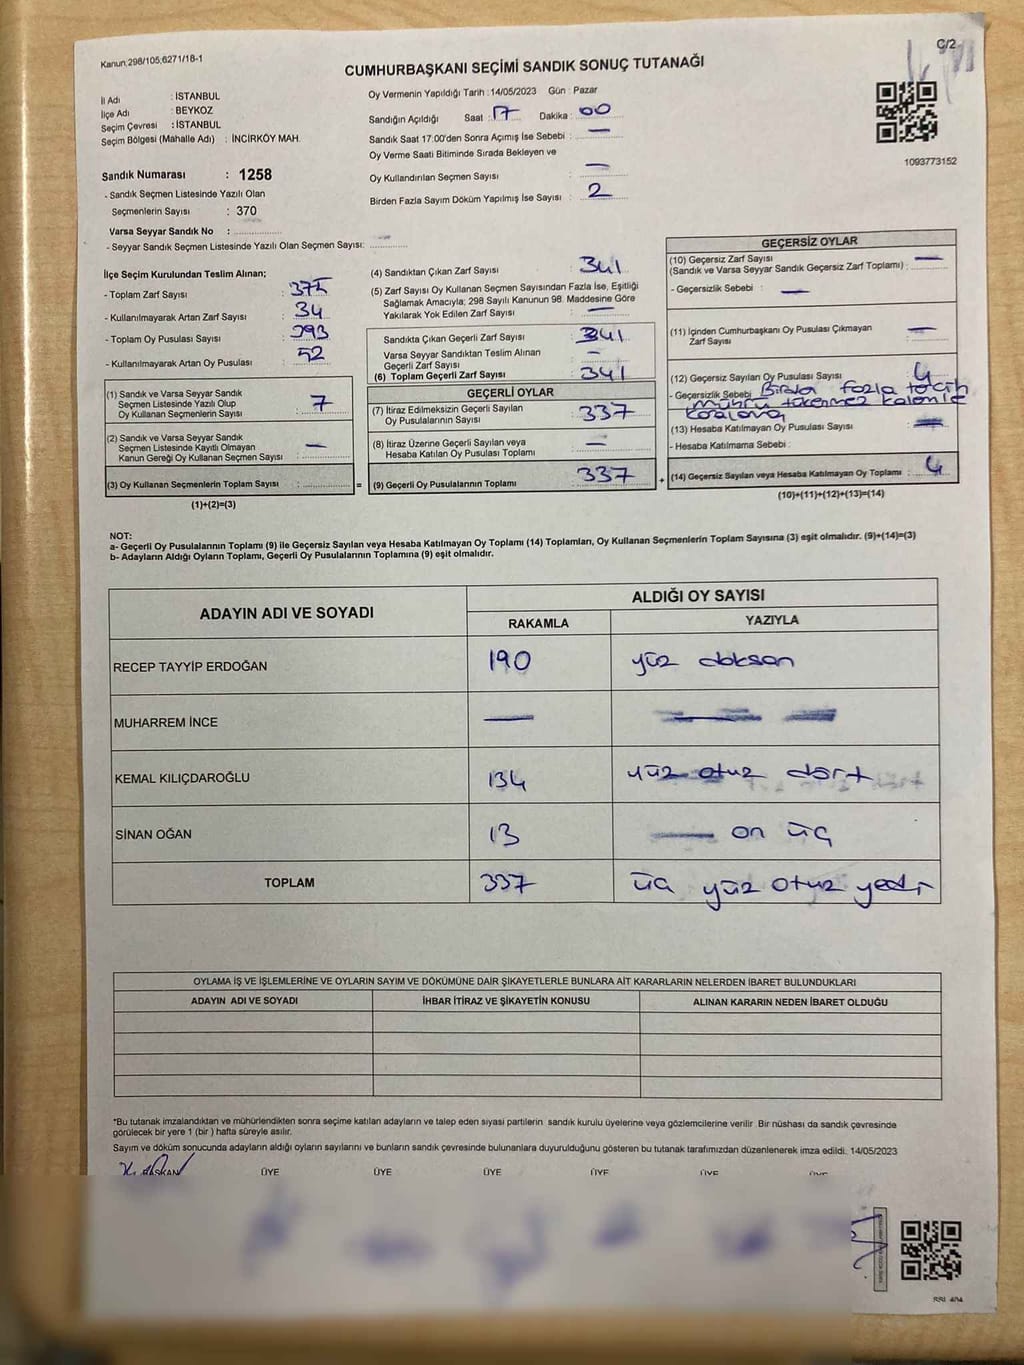 Kanun;298/105;6271/18-1
C/2
CUMHURBAŞKANI SEÇİMİ SANDIK SONUÇ TUTANAĞI
İl Adı : İSTANBUL
İlçe Adı : BEYKOZ
Seçim Çevresi : İSTANBUL
Seçim Bölgesi (Mahalle Adı) : İNCİRKÖY MAH.
Oy Vermenin Yapıldığı Tarih : 14/05/2023 Gün : Pazar
Sandığın Açıldığı Saat : 17 Dakika : 00
Sandık Saat 17:00'den Sonra Açımış İse Sebebi : —
Oy Verme Saati Bitiminde Sırada Bekleyen ve
Oy Kullandırılan Seçmen Sayısı : —
Birden Fazla Sayım Döküm Yapılmış İse Sayısı : 2
1093773152
Sandık Numarası : 1258
- Sandık Seçmen Listesinde Yazılı Olan
Seçmenlerin Sayısı : 370
Varsa Seyyar Sandık No :
- Seyyar Sandık Seçmen Listesinde Yazılı Olan Seçmen Sayısı: —
İlçe Seçim Kurulundan Teslim Alınan;
- Toplam Zarf Sayısı : 375
- Kullanılmayarak Artan Zarf Sayısı : 34
- Toplam Oy Pusulası Sayısı : 393
- Kullanılmayarak Artan Oy Pusulası : 52
(1) Sandık ve Varsa Seyyar Sandık
Seçmen Listesinde Yazılı Olup
Oy Kullanan Seçmenlerin Sayısı : 7
(2) Sandık ve Varsa Seyyar Sandık
Seçmen Listesinde Kayıtlı Olmayan
Kanun Gereği Oy Kullanan Seçmen Sayısı : —
(3) Oy Kullanan Seçmenlerin Toplam Sayısı : =
(1)+(2)=(3)
(4) Sandıktan Çıkan Zarf Sayısı : 341
(5) Zarf Sayısı Oy Kullanan Seçmen Sayısından Fazla İse, Eşitliği
Sağlamak Amacıyla; 298 Sayılı Kanunun 98. Maddesine Göre
Yakılarak Yok Edilen Zarf Sayısı : —
Sandıkta Çıkan Geçerli Zarf Sayısı : 341
Varsa Seyyar Sandıktan Teslim Alınan
Geçerli Zarf Sayısı : —
(6) Toplam Geçerli Zarf Sayısı : 341
GEÇERLİ OYLAR
(7) İtiraz Edilmeksizin Geçerli Sayılan
Oy Pusulalarının Sayısı : 337
(8) İtiraz Üzerine Geçerli Sayılan veya
Hesaba Katılan Oy Pusulası Toplamı : —
(9) Geçerli Oy Pusulalarının Toplamı : 337 +
GEÇERSİZ OYLAR
(10) Geçersiz Zarf Sayısı
(Sandık ve Varsa Seyyar Sandık Geçersiz Zarf Toplamı) : —
- Geçersizlik Sebebi : —
(11) İçinden Cumhurbaşkanı Oy Pusulası Çıkmayan
Zarf Sayısı : —
(12) Geçersiz Sayılan Oy Pusulası Sayısı : 4
- Geçersizlik Sebebi Birden fazla tercih
mührü tükenmez kalemle
karalama
(13) Hesaba Katılmayan Oy Pusulası Sayısı : —
- Hesaba Katılmama Sebebi :
(14) Geçersiz Sayılan veya Hesaba Katılmayan Oy Toplamı : 4
(10)+(11)+(12)+(13)=(14)
NOT:
a- Geçerli Oy Pusulalarının Toplamı (9) ile Geçersiz Sayılan veya Hesaba Katılmayan Oy Toplamı (14) Toplamları, Oy Kullanan Seçmenlerin Toplam Sayısına (3) eşit olmalıdır. (9)+(14)=(3)
b- Adayların Aldığı Oyların Toplamı, Geçerli Oy Pusulalarının Toplamına (9) eşit olmalıdır.
ADAYIN ADI VE SOYADI ALDIĞI OY SAYISI
RAKAMLA YAZIYLA
RECEP TAYYİP ERDOĞAN 190 yüz doksan
MUHARREM İNCE —
KEMAL KILIÇDAROĞLU 134 yüz otuz dört
SİNAN OĞAN 13 — on üç
TOPLAM 337 üç yüz otuz yedi
OYLAMA İŞ VE İŞLEMLERİNE VE OYLARIN SAYIM VE DÖKÜMÜNE DAİR ŞİKAYETLERLE BUNLARA AİT KARARLARIN NELERDEN İBARET BULUNDUKLARI
ADAYIN ADI VE SOYADI İHBAR İTİRAZ VE ŞİKAYETİN KONUSU ALINAN KARARIN NEDEN İBARET OLDUĞU
*Bu tutanak imzalandıktan ve mühürlendikten sonra seçime katılan adayların ve talep eden siyasi partilerin sandık kurulu üyelerine veya gözlemcilerine verilir. Bir nüshası da sandık çevresinde
görülecek bir yere 1 (bir ) hafta süreyle asılır.
Sayım ve döküm sonucunda adayların aldığı oyların sayılarını ve bunların sandık çevresinde bulunanlara duyurulduğunu gösteren bu tutanak tarafımızdan düzenlenerek imza edildi. 14/05/2023
BAŞKAN ÜYE ÜYE ÜYE ÜYE ÜYE ÜYE